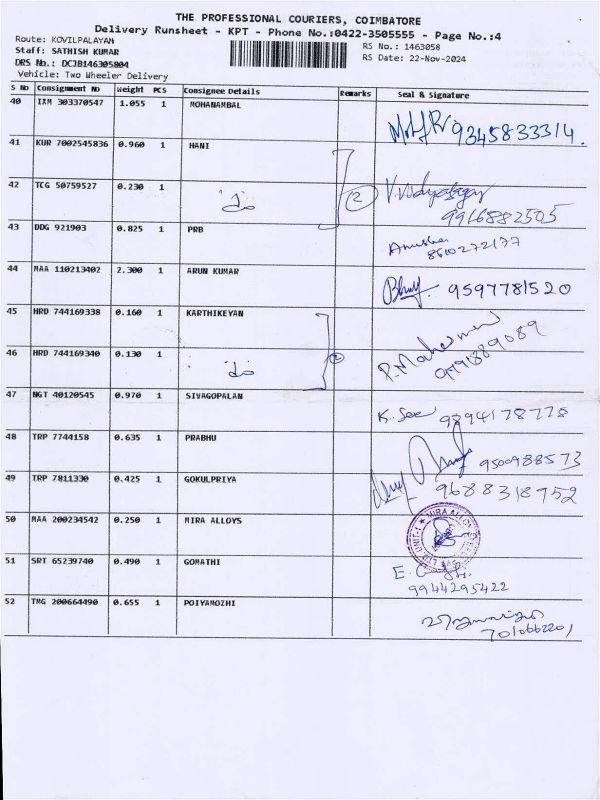 THE PROFESSIONAL COURIERS, COIMBATORE
Delivery Runsheet - KPT - Phone No.:0422-3505555 - Page No.:4
Route: KOVILPALAYAM
Staff: SATHISH KUMAR
DRS No.: DCJB146305804
Vehicle: Two Wheeler Delivery
RS No.: 1463058
RS Date: 22-Nov-2024
S No Consignment No Weight PCS Consignee Details Remarks Seal & Signature
40 IXM 303370547 1.055 1 MOHANAMBAL 9345833314.
41 KUR 7002545836 0.960 1 HANI
42 TCG 50759527 0.230 1 2 9916882505
43 DDG 921903 0.825 1 PRB Anusha 8610272177
44 MAA 110213402 2.300 1 ARUN KUMAR 9597781520
45 HRD 744169338 0.160 1 KARTHIKEYAN
46 HRD 744169340 0.130 1 2
47 NGT 40120545 0.970 1 SIVAGOPALAN 9894178778
48 TRP 7744158 0.635 1 PRABHU 9500988573
49 TRP 7811330 0.425 1 GOKULPRIYA 9688318752
50 MAA 200234542 0.250 1 MIRA ALLOYS
51 SRT 65239740 0.490 1 GOMATHI 9944295422
52 TMG 200664490 0.655 1 POIYAMOZHI 7010662201